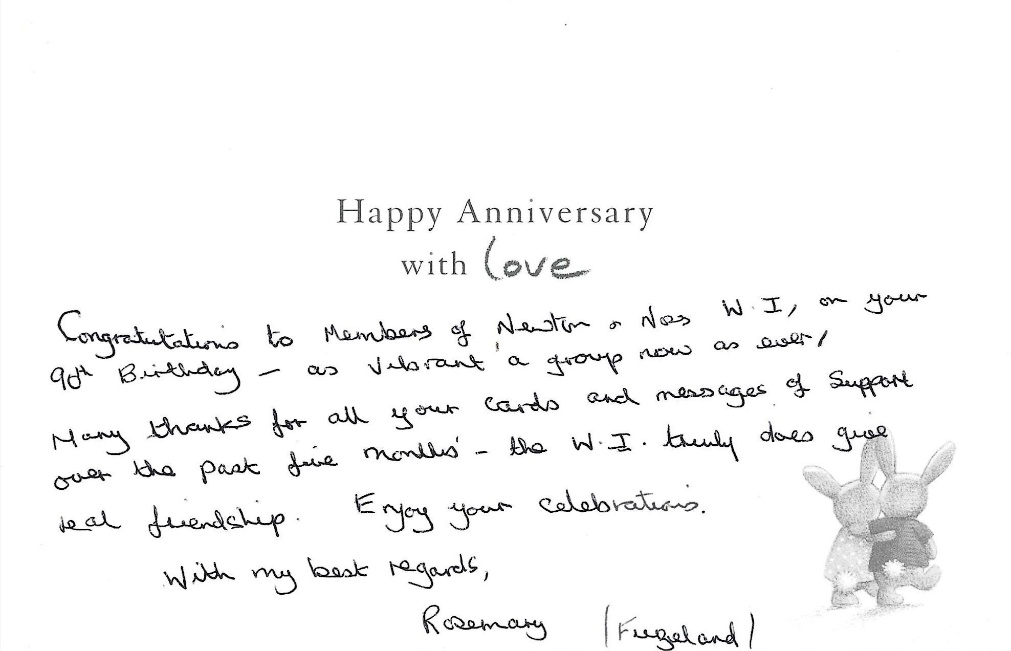 Happy Anniversary
with love
Congratulations to Members of Newton & Noss W.I, on your
90th Birthday – as vibrant a group now as ever!
Many thanks for all your cards and messages of support
over the past five months – the W.I. truly does give
real friendship. Enjoy your celebrations.
With my best regards,
Rosemary